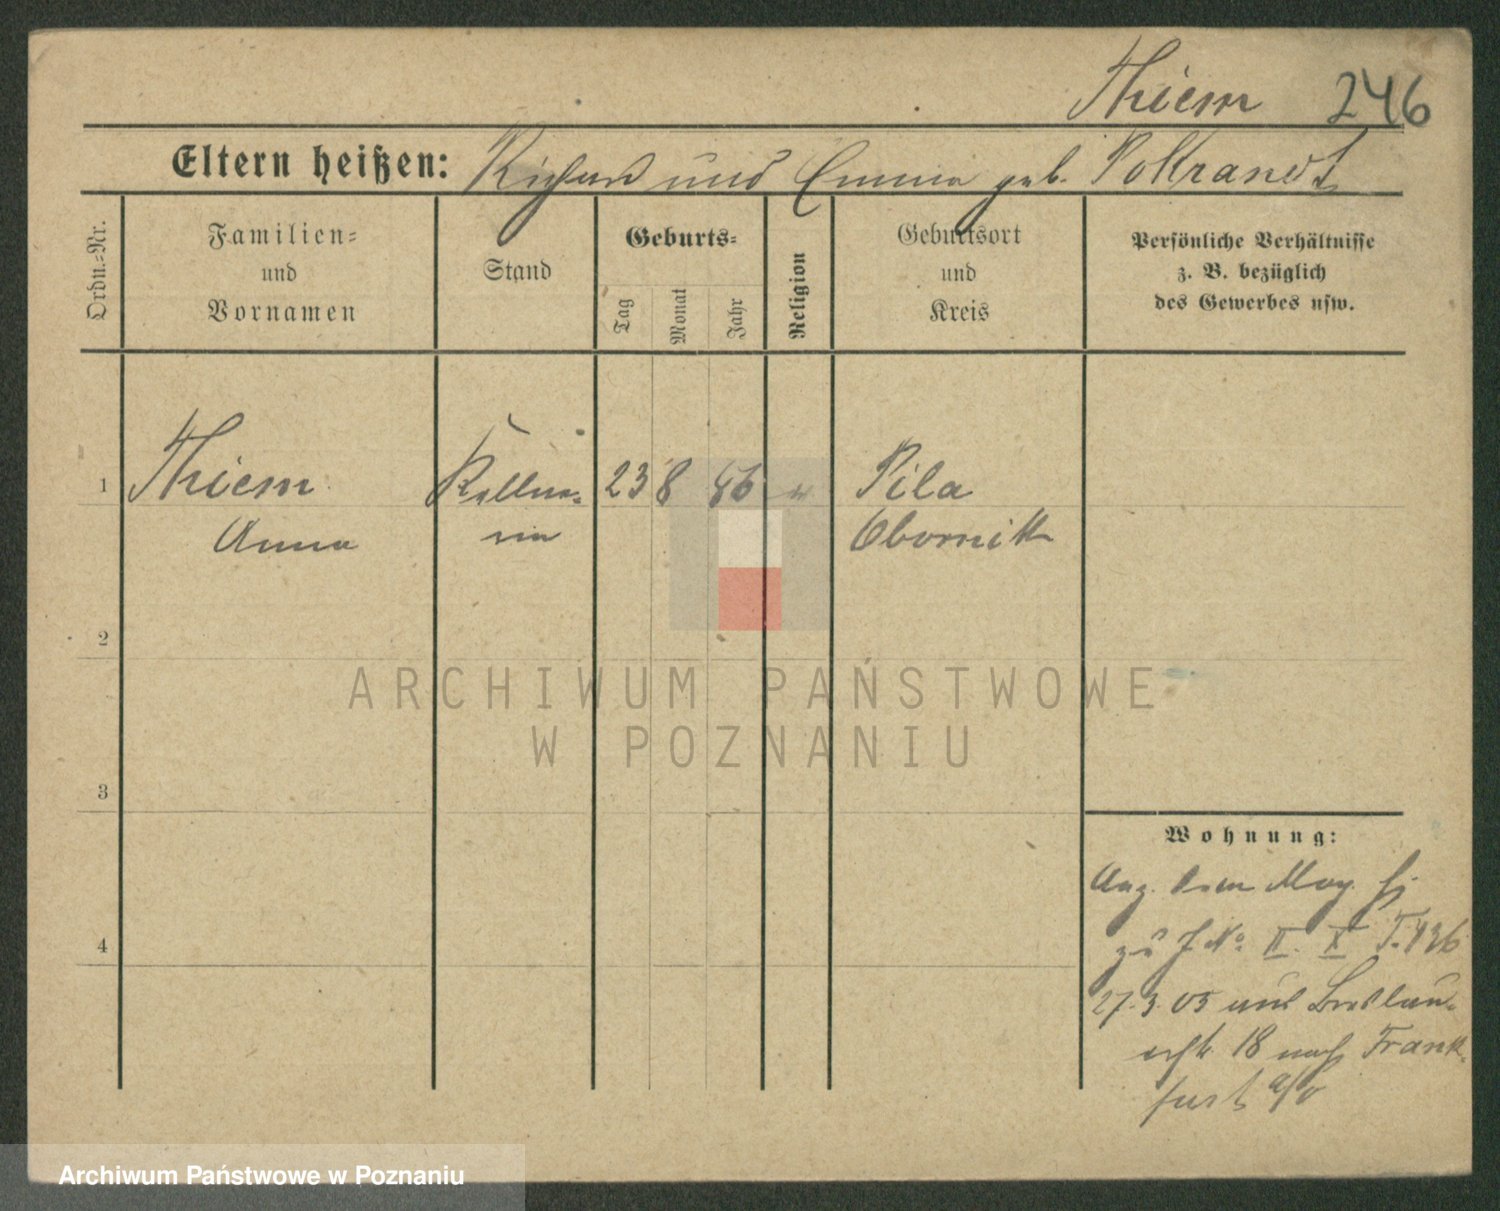 Thiem 246
Eltern heißen: Richard und Emma geb. Pokrandt
Ordn.-Nr.
Familien-
und
Vornamen
Stand
Geburts-
Tag
Monat
Jahr
Religion
Geburtsort
und
Kreis
Persönliche Verhältnisse
z. B. bezüglich
des Gewerbes usw.
1 Thiem Kellne- 23 8 86 Pila
Anna rin Obornik
2
3
4
Wohnung:
Ang. dem Mag.
zu J. No. II. X T. 436
27.3.05 aus Breslau-
erstr. 18 nach Frank-
furt a/O
ARCHIWUM PAŃSTWOWE
W POZNANIU
Archiwum Państwowe w Poznaniu